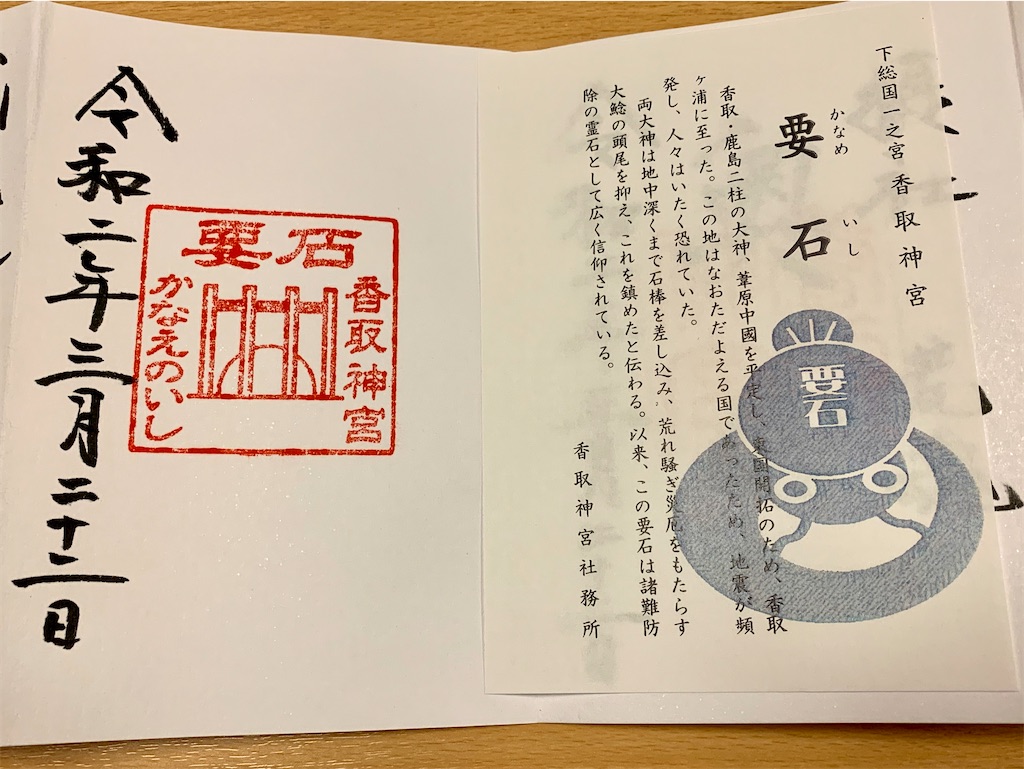 下総国一之宮 香取神宮
かなめ いし
要石
香取・鹿島二柱の大神、葦原中國を平定し、東國開拓のため、香取
ヶ浦に至った。この地はなおただよえる国であったため、地震が頻
発し、人々はいたく恐れていた。
両大神は地中深くまで石棒を差し込み、荒れ騒ぎ災厄をもたらす
大鯰の頭尾を抑え、これを鎮めたと伝わる。以来、この要石は諸難防
除の霊石として広く信仰されている。
香取神宮社務所
要石
要石
香取神宮
かなえのいし
令和二年三月二十二日